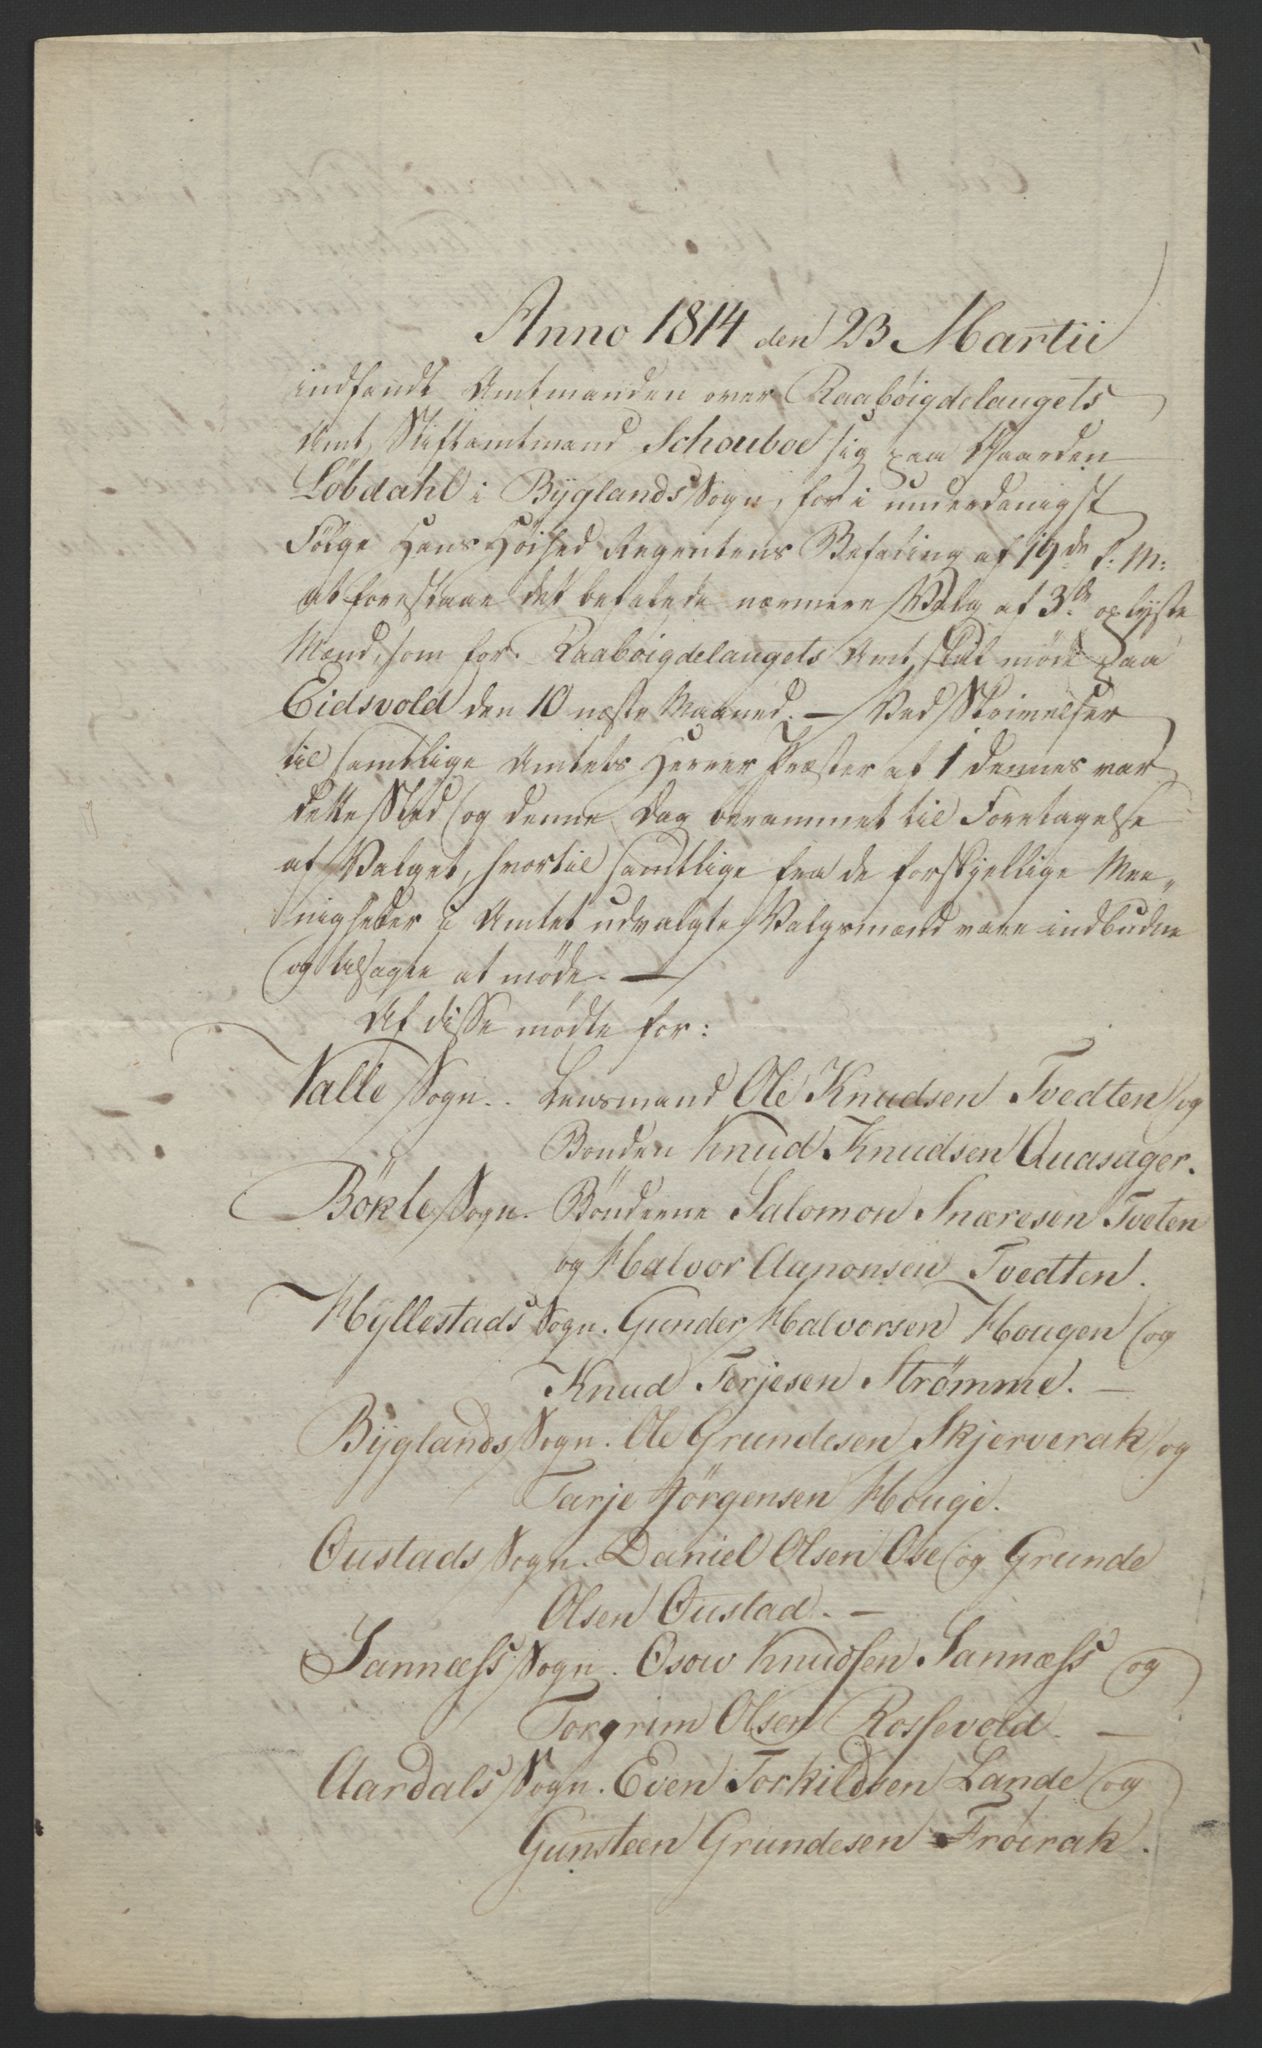 Anno 1814 den 23 Martii
indfandt Amtmanden over Raabøigdelaugets
Amt, Stiftamtmand Schouboe sig paa Gaarden
Løbdahl i Byglands Sogn, for i underdanigst
Følge Hans Høihed Regentens Befaling af 19de f: M:
at forestaae det befalede nærmere Valg af 3de oplyste
Mænd, som for Raabøigdelaugets Amt skal møde paa
Eidsvold den 10 næste Maaned. — Ved Skrivelser
til samtlige Amtets Herrer Præster af 1 dennes var
dette Sted og denne Dag berammet til Foretagelse
af Valget, hvortil samtlige fra de forskjellige Mee-
nigheder i Amtet udvalgte Valgmænd vare indbudne
og tilsagte at møde. —
Af disse mødte for:
Valle Sogn.. Lensmand Ole Knudsen Tvedten og
Bonden Knud Knudsen Quasager.
Bökle Sogn. Bønderne Salomon Snæresen Tveten
og Halvor Aanonsen Tvedten.
Hyllestads Sogn. Gunder Halvorsen Hougen og
Knud Torjesen Strømme. —
Byglands Sogn. Ole Grundesen Skjerverak og
Tarje Jörgensen Houge.
Oustads Sogn. Daniel Olsen Ose og Grunde
Olsen Oustad. —
Sannæss Sogn. Osow Knudsen Sannæss og
Torgrim Olsen Rossevold. —
Aardals Sogn. Even Torkildsen Lande og
Gunsteen Grundesen Frøirak.